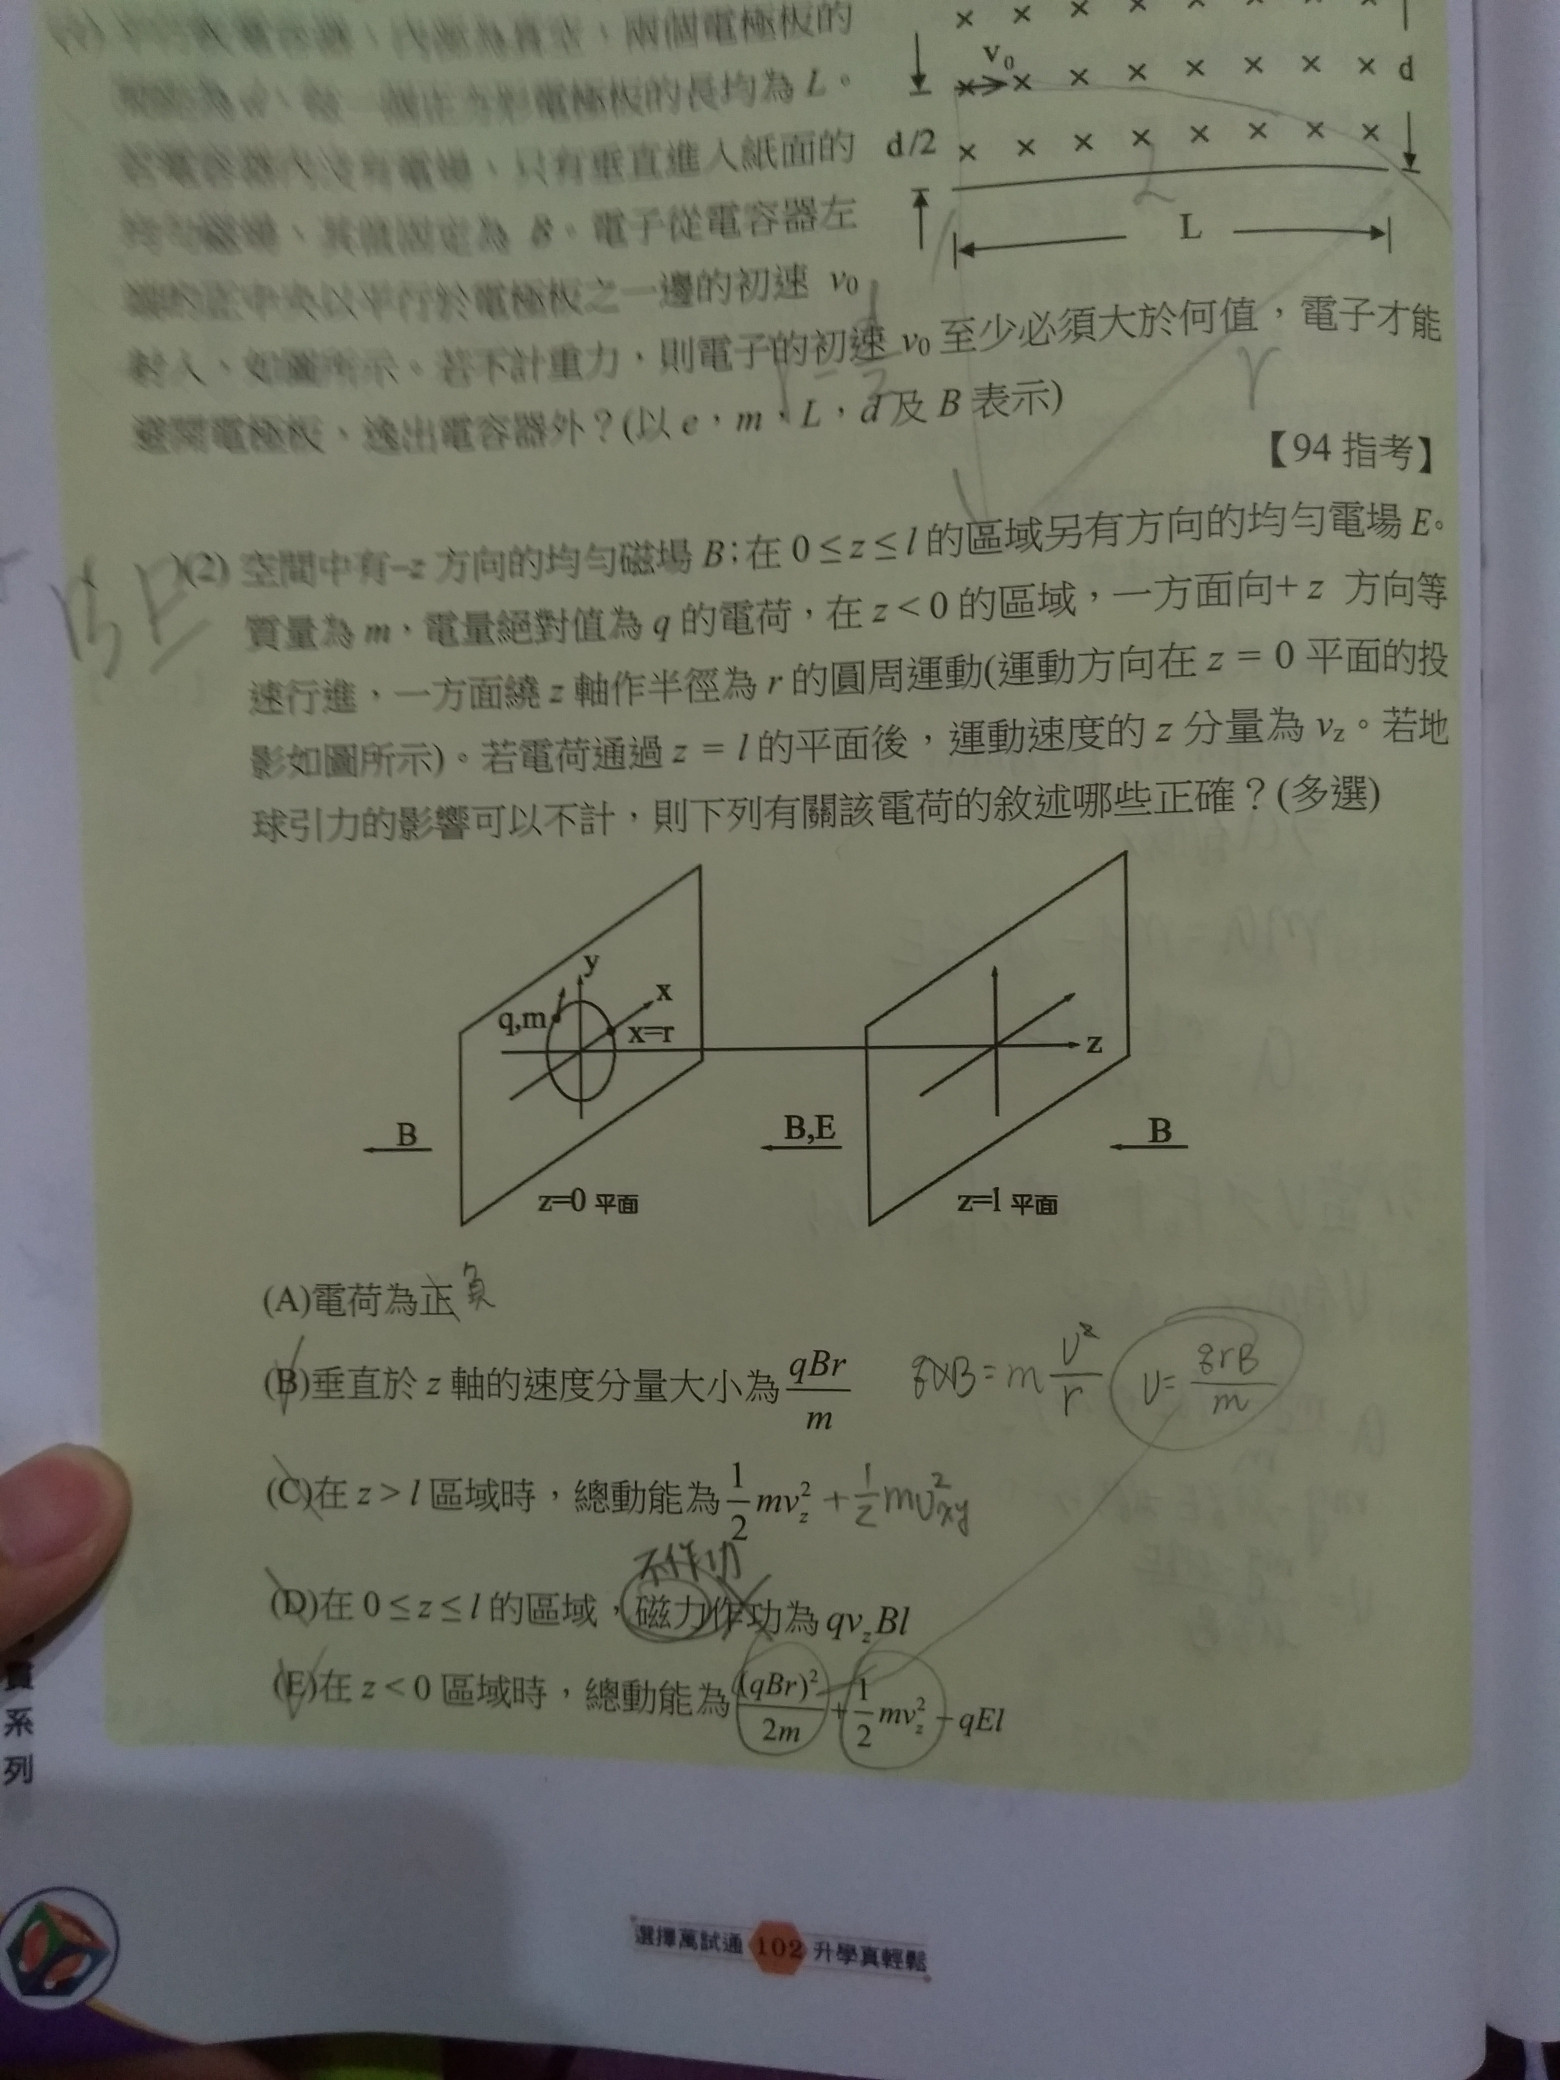 兩個電極板的
電極板的長均為 L。
只有垂直進入紙面的
均勻磁場，其值固定為 B。電子從電容器左
端的正中央以平行於電極板之一邊的初速 v₀
射入，如圖所示。若不計重力，則電子的初速 v₀ 至少必須大於何值，電子才能
避開電極板、逸出電容器外？(以 e，m，L，d及 B 表示)
【94 指考】
v₀
d
d/2
L
L
r
BE
(2) 空間中有–z 方向的均勻磁場 B；在 0≤z≤l 的區域另有方向的均勻電場 E。
質量為 m，電量絕對值為 q 的電荷，在 z<0 的區域，一方面向+ z 方向等
速行進，一方面繞 z 軸作半徑為 r 的圓周運動(運動方向在 z = 0 平面的投
影如圖所示)。若電荷通過 z = l 的平面後，運動速度的 z 分量為 v_z。若地
球引力的影響可以不計，則下列有關該電荷的敘述哪些正確？(多選)
y
x
q,m
x=r
z
B
B,E
B
z=0 平面
z=l 平面
(A)電荷為正 負
(B)垂直於 z 軸的速度分量大小為 qBr/m qvB=m v²/r v= qrB/m
(C)在 z>l 區域時，總動能為 1/2 mv_z² + 1/2 mv²_xy
不作功
(D)在 0≤z≤l 的區域，磁力作功為 qv_zBl
(E)在 z<0 區域時，總動能為 (qBr)²/2m + 1/2 mv_z² – qEl
系列
選擇萬試通 102 升學真輕鬆